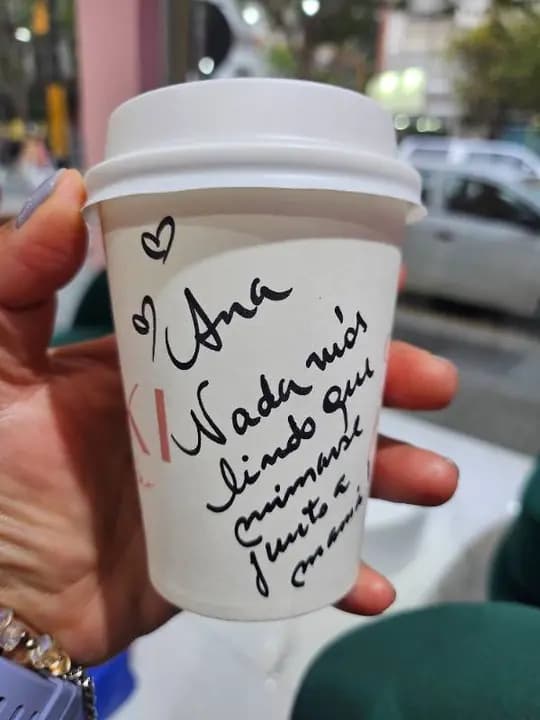 Ana
Nada más
lindo que
mimarse
junto a
mamá!
KI